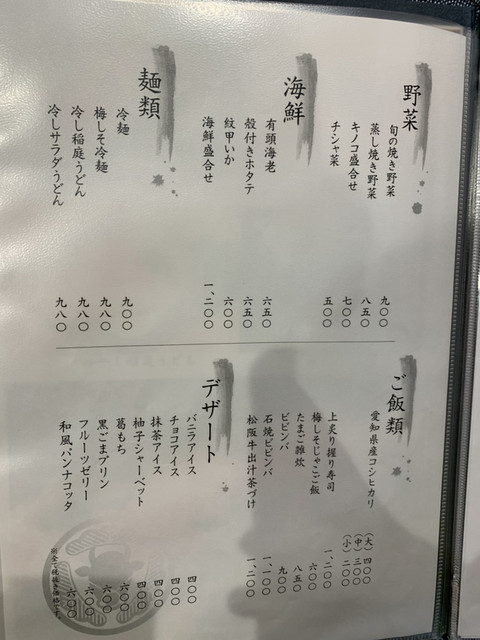 野菜
旬の焼き野菜 九〇〇
蒸し焼き野菜 八五〇
キノコ盛合せ 七〇〇
チシャ菜 五〇〇
海鮮
有頭海老 六五〇
殻付きホタテ 六五〇
紋甲いか 六〇〇
海鮮盛合せ 一、二〇〇
麺類
冷麺 九〇〇
梅しそ冷麺 九八〇
冷し稲庭うどん 九八〇
冷しサラダうどん 九八〇
ご飯類
愛知県産コシヒカリ (大)四〇〇
(中)三〇〇
(小)二〇〇
上炙り握り寿司 一、二〇〇
梅しそじゃこご飯 六〇〇
たまご雑炊 八五〇
ビビンバ 九〇〇
石焼ビビンバ 一、一〇〇
松阪牛出汁茶づけ 一、二〇〇
デザート
バニラアイス 四〇〇
チョコアイス 四〇〇
抹茶アイス 四〇〇
柚子シャーベット 四〇〇
葛もち 六〇〇
黒ごまプリン 六〇〇
フルーツゼリー 六〇〇
和風パンナコッタ 六〇〇
※全て税抜き価格です。